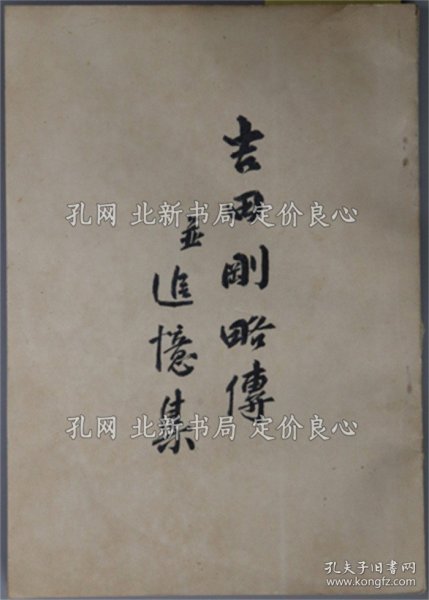 吉田剛略傳
並追憶集
孔网 北新书局 定价良心
孔网 北新书局 定价良心
孔夫子旧书网
www.kongfz.com